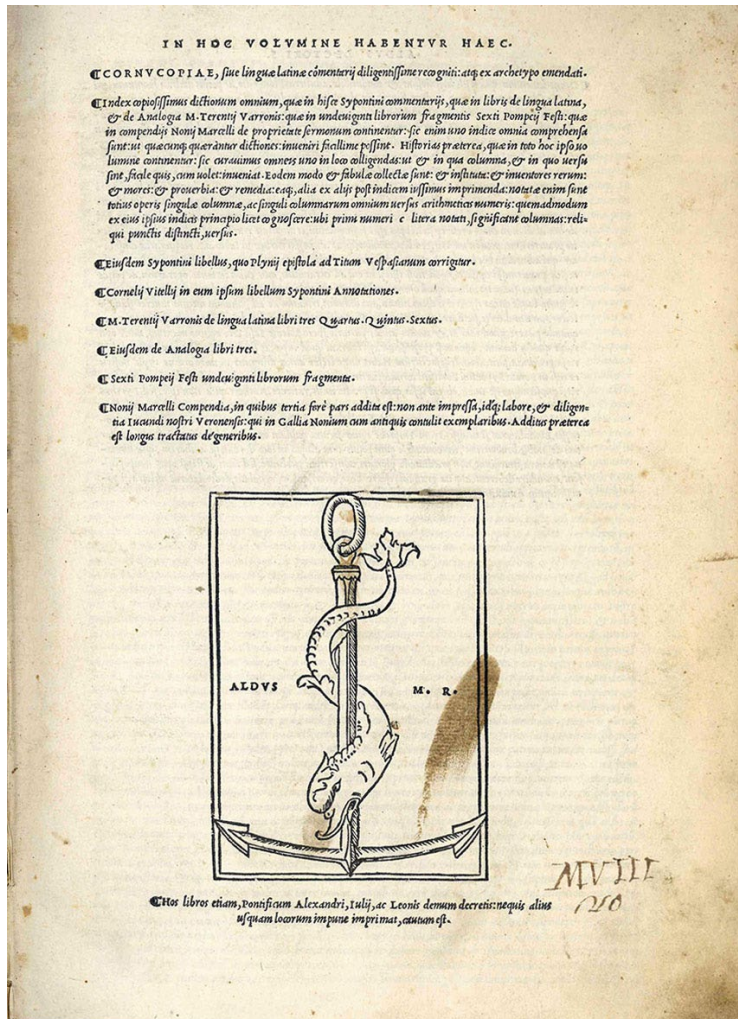 IN HOC VOLVMINE HABENTVR HAEC.
¶CORNVCOPIAE, siue linguæ latinæ cōmentarij diligentissime recogniti: atq; ex archetypo emendati.
¶Index copiosissimus dictionum omnium, quæ in hisce Sypontini commentarijs, quæ in libris de lingua latina,
& de Analogia M. Terentij Varronis: quæ in undeuiginti librorum fragmentis Sexti Pompeij Festi: quæ
in compendijs Nonij Marcelli de proprietate sermonum continentur: sic enim uno indice omnia comprehensa
sunt: ut quæcunq; quærantur dictiones: inueniri facillime possint. Historias præterea, quæ in toto hoc ipso uo
lumine continentur: sic curauimus omneis uno in loco colligendas: ut & in qua columna, & in quo uersu
sint, facile quis, cum uolet: inueniat. Eodem modo & fabulæ collectæ sunt: & instituta: & inuentores rerum:
& mores: & prouerbia: & remedia: eaq; alia ex alijs post indicem iussimus imprimenda: notatæ enim sunt
totius operis singulæ columnæ, ac singuli columnarum omnium uersus arithmeticis numeris: quemadmodum
ex eius ipsius indicis principio licet cognoscere: ubi primi numeri c litera notati, significant columnas: reli-
qui punctis distincti, uersus.
¶Eiusdem Sypontini libellus, quo Plynij epistola ad Titum Vespasianum corrigitur.
¶Cornelij Vitellij in eum ipsum libellum Sypontini Annotationes.
¶M. Terentij Varronis de lingua latina libri tres Quartus. Quintus. Sextus.
¶Eiusdem de Analogia libri tres.
¶Sexti Pompeij Festi undeuiginti librorum fragmenta.
¶Nonij Marcelli Compendia, in quibus tertia ferè pars addita est: non ante impressa, idq; labore, & diligen-
tia Iucundi nostri Veronensis: qui in Gallia Nonium cum antiquis contulit exemplaribus. Additus præterea
est longus tractatus de generibus.
ALDVS M. R.
MVIII
¶Hos libros etiam, Pontificum Alexandri, Iulij, ac Leonis demum decretis: nequis alius
usquam locorum impune imprimat, cautum est.